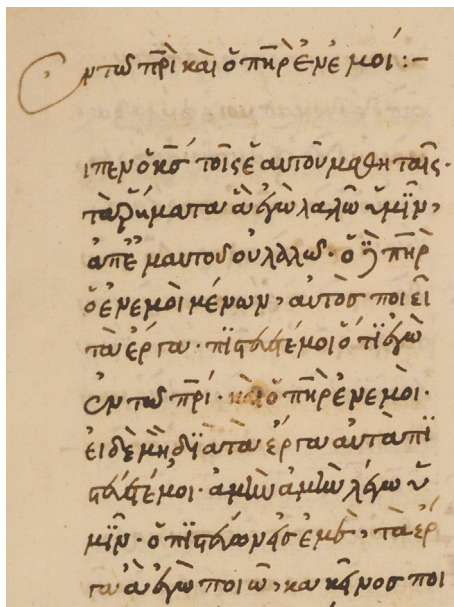 ἐν τῶ πρὶ καὶ ὁ πὴρ ἐν ἐμοί:–
ιπεν ὁ κσ τοῖς ἑαυτοῦ μαθηταῖς·
τὰ ῥήματα ἃ ἐγὼ λαλῶ ὑμῖν,
ἀπ' ἐμαυτοῦ οὐ λαλῶ· ὁ δὲ πὴρ
ὁ ἐν ἐμοὶ μένων, αὐτὸσ ποιεῖ
τὰ ἔργα· πιστεύετέ μοι ὅτι ἐγὼ
ἐν τῶ πρί· καὶ ὁ πὴρ ἐν ἐμοὶ·
εἰ δὲ μὴ διὰ τὰ ἔργα αὐτὰ πι
στεύετέ μοι· ἀμὴν ἀμὴν λέγω ὑ
μῖν· ὁ πιστεύων εἰσ ἐμὲ, τὰ ἔρ
γα ἃ ἐγὼ ποιῶ, κακεῖνοσ ποι